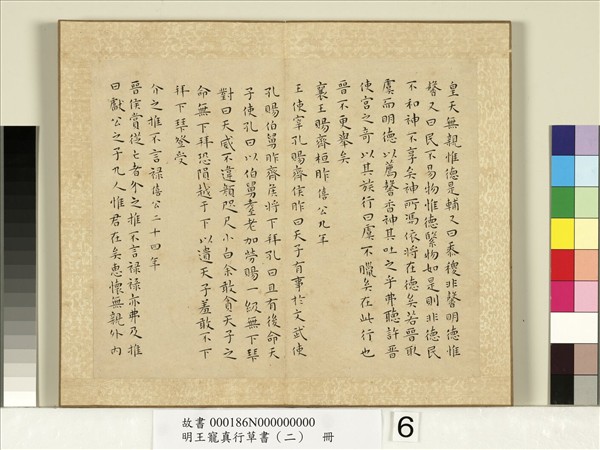 皇天無親惟德是輔又曰黍稷非馨明德惟
馨又曰民不易物惟德繄物如是則非德民
不和神不享矣神所馮依將在德矣若晉取
虞而明德以薦馨香神其吐之乎弗聽許晉
使宮之奇以其族行曰虞不臘矣在此行也
晉不更舉矣
襄王賜齊桓胙僖公九年
王使宰孔賜齊侯胙曰天子有事於文武使
孔賜伯舅胙齊侯將下拜孔曰且有後命天
子使孔曰以伯舅耋老加勞賜一級無下拜
對曰天威不違顏咫尺小白余敢貪天子之
命無下拜恐隕越于下以遺天子羞敢不下
拜下拜登受
介之推不言祿僖公二十四年
晉侯賞從亡者介之推不言祿祿亦弗及推
曰獻公之子九人惟君在矣惠懷無親外內
故書 000186N000000000
明王寵真行草書（二） 冊
6